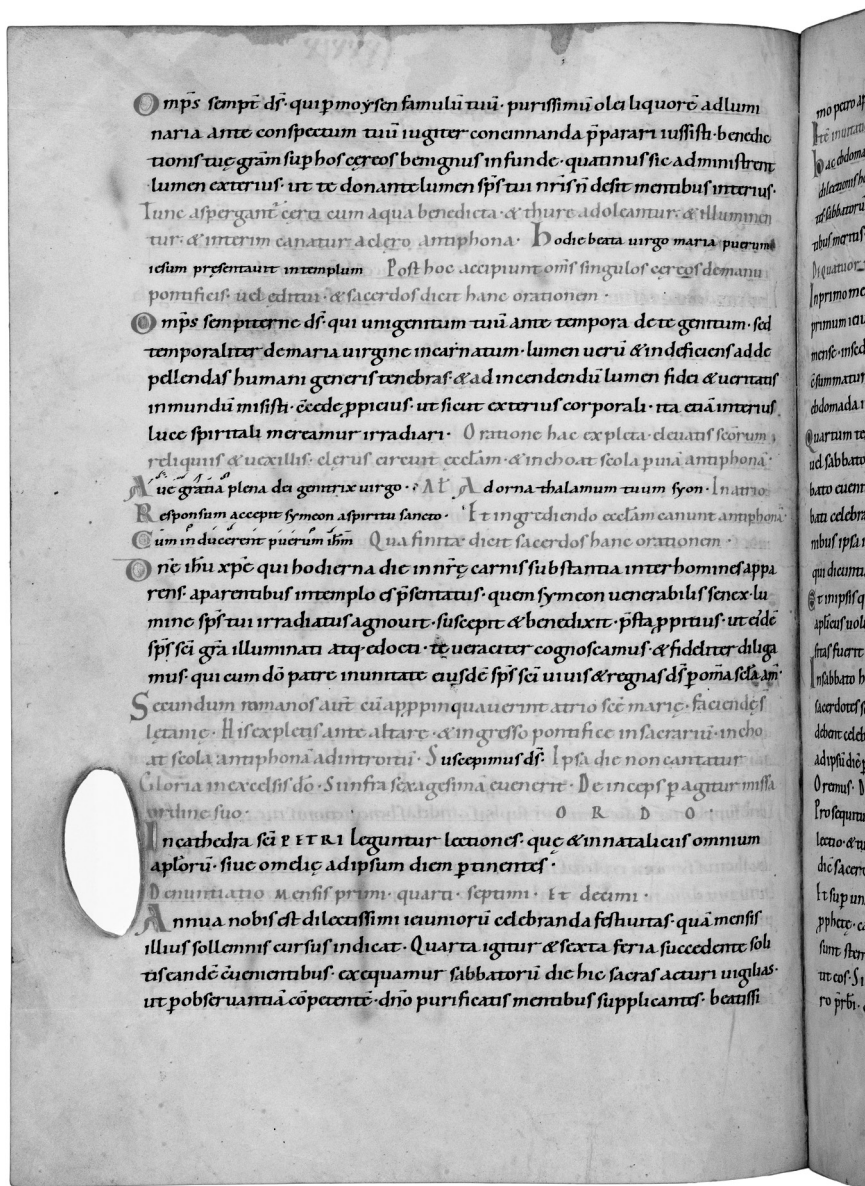 Omp̄s sempt̄ ds̄· qui ꝑ moẏsen famulū tuū· purissimū olei liquorē ad lumi
naria ante conspectum tuū iugiter concinnanda p̄parari iussisti· benedic
tionis tuę grām̄ sup hos cęreos benignus infunde· quatinus sic administrent
lumen exterius· ut te donante lumen sp̄s tui nr̄is n̄ desit mentibus interius·
Tunc aspergant̄ cęrei cum aqua benedicta· & thure adoleantur· & illuminen
tur· & interim canatur a clero antiphona· Hodie beata virgo maria puerum
iesum pręsentavit in templum Post hoc accipiunt om̄s singulos cęreos de manu
pontificis· uel editui· & sacerdos dicit hanc orationem·
Omp̄s sempiterne ds̄· qui unigenitum tuū ante tempora de te genitum· sed
temporaliter de maria uirgine incarnatum· lumen uerū & indeficiens ad de
pellendas humani generis tenebras· & ad incendendū lumen fidei & ueritatis
in mundū misisti· c̄cede ꝓpicius· ut sicut exterius corporali· ita etiā interius
luce spiritali mereamur irradiari· Oratione hac expleta· eleuatis sc̄orum
reliquiis & uexillis· clerus circuit ecclām· & inchoat scola primā antiphonā·
Ave gratia plena dei genitrix virgo· Al̄ Adorna thalamum tuum syon· In atrio
Responsum accepit symeon a spiritu sancto· Et ingrediendo ecclām canunt antiphonā·
Cum inducerent puerum ihm̄ Qua finita dicit sacerdos hanc orationem·
Dn̄e ihū xp̄e qui hodierna die in nr̄ę carnis substantia inter homines appa
rens· a parentibus in templo es p̄sentatus· quem symeon venerabilis senex· lu
mine sp̄s tui irradiatus agnouit· suscepit & benedixit· p̄sta ꝓpitius· ut eidē
sp̄s sc̄i grā illuminati atq· edocti· te ueraciter cognoscamus· & fideliter diliga
mus· qui cum dō patre in unitate eiusdē sp̄s sc̄i uiuis & regnas ds̄ ꝑ om̄a sc̄la am̄·
Secundum romanos aut̄ cū apppinquauerint atrio sc̄ę marię· faciendę s̄
lętanię· His expletis ante altare· & ingresso pontifice in sacrariū· incho
at scola antiphonā ad introitū· Suscepimus ds̄· Ipsa die non cantatur
Gloria in excelsis dō· Si infra sexagesimā euenerit· Deinceps ꝑagitur missa
ordine suo· O R D O·
In cathedra sc̄i PETRI leguntur lectiones· quę & in nataliciis omnium
aplōrū· siue omelię ad ipsum diem ꝑtinentes·
Denuntiatio Mensis primi· quarti· septimi· Et decimi·
Annua nobis est dilectissimi ieiuniorū celebranda festiuitas· quā mensis
illius sollemnis cursus indicat· Quarta igitur & sexta feria succedente soli
tis eandē c̄uenientibus· exequamur sabbatorū die hic sacras acturi uigilias·
ut ꝑ obseruantiā cōpetentē· dn̄o purificatis mentibus supplicantes· beatissi